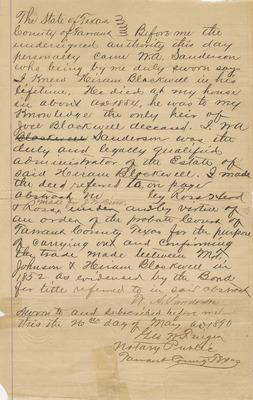 The State of Texas
County of Tarrant Before me the
undersigned authority this day
personally came WA. Sanderson
who being by me duly sworn says
I Knew Hiram Blackwell in his
lifetime. He died at my house
in about AD 1854, he was to my
Knowledge the only heir of
Joel Blackwell deceased. I. WA
Sanderson was the
duly and legally qualified
administrator of the Estate of
said Hiram Blackwell. I made
the deed referred to, on page
abstract
made under and by virtue of
an order of the probate Court of
Tarrant County Texas for the purpose
of carrying out and confirming
the trade made between M.T.
Johnson & Hiram Blackwell in
1852 as evidenced by the Bond
for title referred to in said abstract
W. A. Sanderson
Sworn to and subscribed before me
this the 26th day of May AD 1890
Geo W
Notary Public
Tarrant County Texas